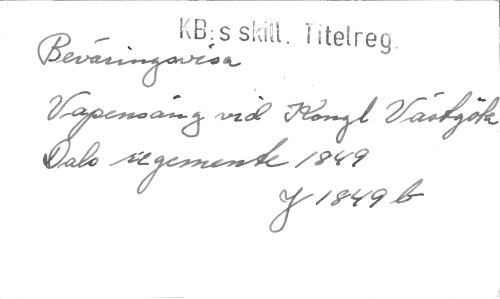 KB:s skill. Titelreg.
Beväringsvisa
Vapensång vid Kongl Västgöta
Dals regemente 1849
J 1849 b